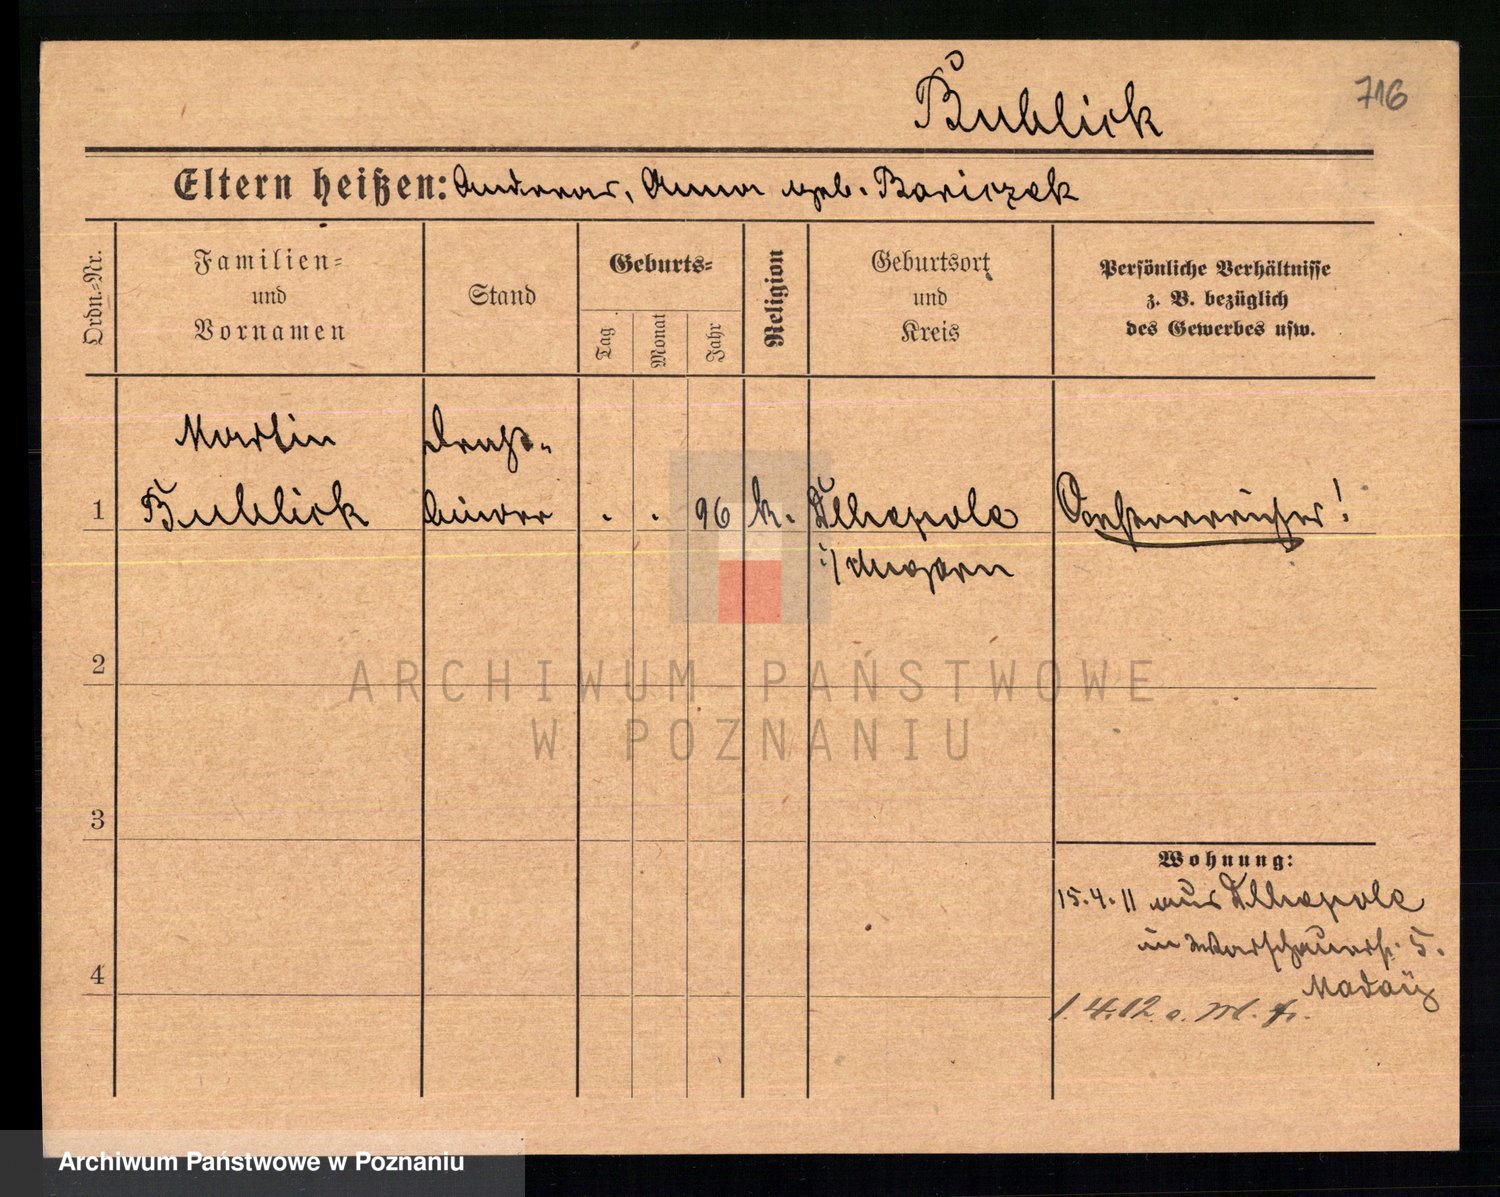 Bublick
716
Eltern heißen: Andreas, Anna geb. Bariczek
Ordn.-Nr.
Familien-
und
Vornamen
Stand
Geburts-
Tag
Monat
Jahr
Religion
Geburtsort
und
Kreis
Persönliche Verhältnisse
z. B. bezüglich
des Gewerbes usw.
1
Martin
Bublick
Draht-
binder
. . 96
k.
i/ Ungarn
Oesterreicher!
2
ARCHIWUM PAŃSTWOWE
W POZNANIU
3
Wohnung:
15.4.11 aus
in Warschauerstr. 5.
4
1.4.12 o. M. f.
Archiwum Państwowe w Poznaniu